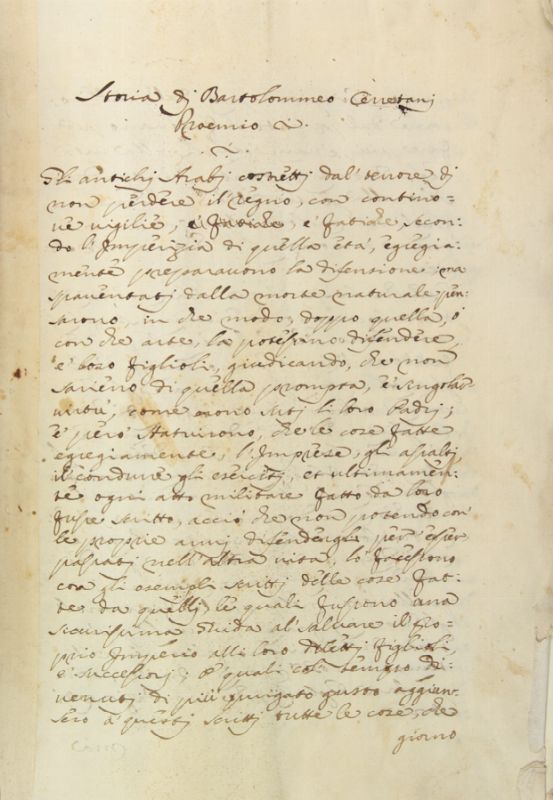 Storia di Bartolommeo Cerretani
Proemio
Gli antichi Arabj costretti dal' tenore di
non perdere il regno, con contino-
ve vigilie, e fatiche secon-
do l'Imperizia di quella età, egregia-
mente preparavono la difensione; ma
spaventati dalla morte naturale pen-
sorono, in che modo, doppo quella, ò
con che arte, la potessino difendere,
e' loro figlioli, giudicando, che non
sarieno di quella prompta, e singolar
virtù, come erono suti li loro Padrj;
e' però statuirono, che le cose fatte
egregiamente, l'Imprese, gli assalti,
il condurre gli esercitj, et ultimamen-
te ogni atto militare fatto da loro
fusse scritto, acciò che non potendo con
le proprie armj difendergli per esser
passati nell'altra vita, lo facessono
con gli esempli scritti delle cose fat-
te da quelli, le quali fussono una
sicurissima Guida al' salvare il pro-
prio Imperio alli loro diletti figlioli,
e' successorj; e' quali col' tempo di-
venuti di più gusto aggiun-
sero à questi scritti tutte le cose, che
giorno